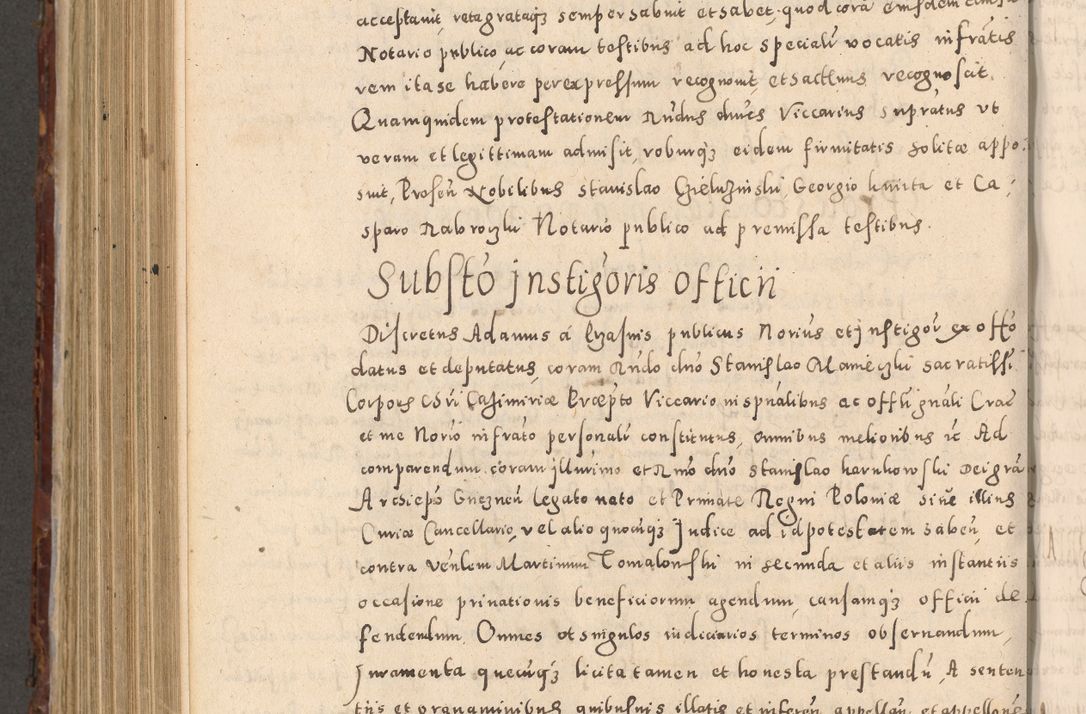 acceptavit, ratagrataqꝫ semper habuit et habet, quod corā eiusdem
Notario publico ac coram testibus ad hoc specialr̄ vocatis infrātis
rem ita se habere per expressum recognovit, et hactenus recognoscit.
Quamquidem protestationem Rn̄dus dn̄us Viccarius suprātus ut
veram et legittimam admisit, roburqꝫ eidem firmitatis solitæ appo:
suit, Præsen̄ Nobilibus Stanislao Gieluzinski, Georgio kwirta et Ca:
sparo Nabroczki Notario publico ad premissa testibus.
Substō jnstigōris officii
Discretus Adamus á Czasnis publicus Norius et jnstigōr ex offō
datus et deputatus, coram Rn̄do dn̄o Stanislao Mamieczki sacratissi
Corporis Chrī Casimiriæ Præpto Viccario in spūalibus ac offlī gn̄ali Crac̄
et me Noriō infrato personalr̄ constitutus, omnibus melioribus ꝛc Ad
comparendum coram jllurīmo et Rmō dn̄o Stanislao karnkowski Dei grā
Archiepō Gneznen̄ Legato nato et Primate Regni Poloniæ sive illius
Curiæ Cancellario, vel alio quocūqꝫ Judice ad id potestatem haben̄, et
contra Ven̄lem Martinum Tomalonski in secunda et aliis instantiis
occasione privationis beneficiorum agendum, causamqꝫ officii de
fendendum, Omnes et singulos iudiciarios terminos observandum,
Juramenta quecūqꝫ licita tamen et honesta prestandū, A senten
tiis et gravaminibus quibusvis illatis et inferen̄ appellan̄, et appellone